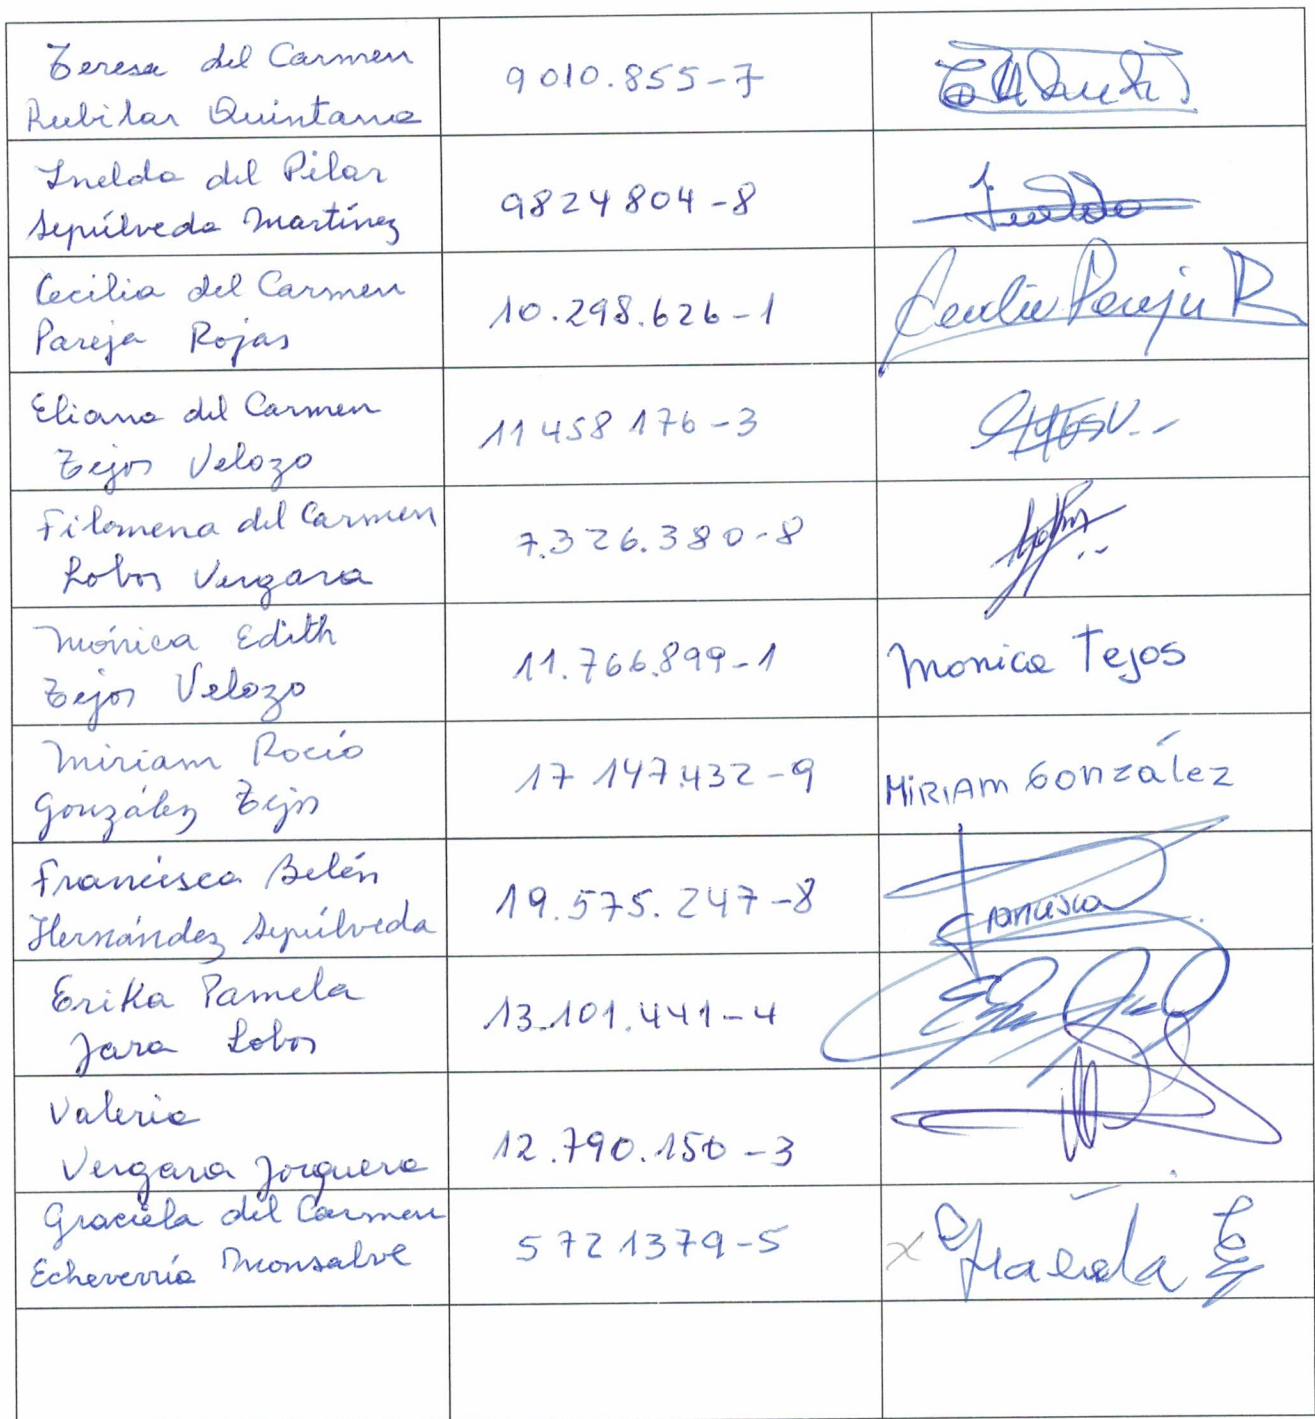 Teresa del Carmen
Rubilar Quintana
9010.855-7
Inelda del Pilar
Sepúlveda Martínez
9824804-8
Inelda
Cecilia del Carmen
Pareja Rojas
10.298.626-1
Cecilia Pareja R
Eliana del Carmen
Tejos Velozo
11458176-3
Filomena del Carmen
Lobos Vergara
7.326.380-8
Mónica Edith
Tejos Velozo
11.766.899-1
Monica Tejos
Miriam Rocío
González Tejos
17 147.432-9
MiRiAM González
Francisca Belén
Hernández Sepúlveda
19.575.247-8
Francisca
Erika Pamela
Jara Lobos
13.101.441-4
Valeria
Vergara Jorquera
12.790.150-3
Graciela del Carmen
Echeverría Monsalve
5721379-5
x Graciela E